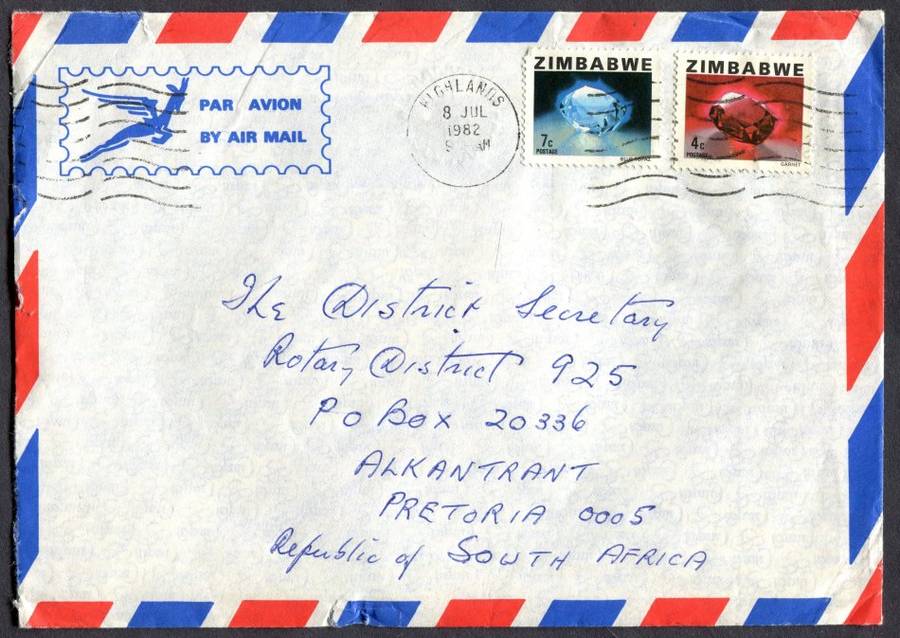 PAR AVION
BY AIR MAIL
HIGHLANDS
8 JUL
1982
ZIMBABWE
7c
POSTAGE
BLUE TOPAZ
ZIMBABWE
4c
POSTAGE
GARNET
The District Secretary
Rotary District 925
PO BOX 20336
ALKANTRANT
PRETORIA 0005
Republic of SOUTH AFRICA